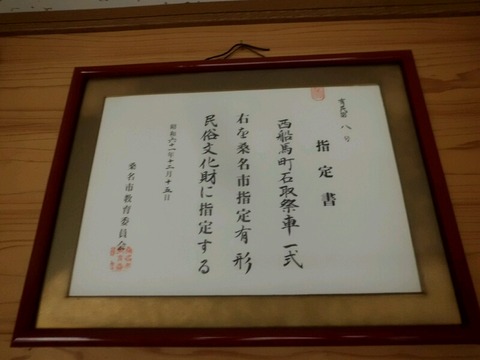 有民第八号
指定書
西船馬町石取祭車 一式
右を桑名市指定有形
民俗文化財に指定する
昭和六十一年十二月十五日
桑名市教育委員会